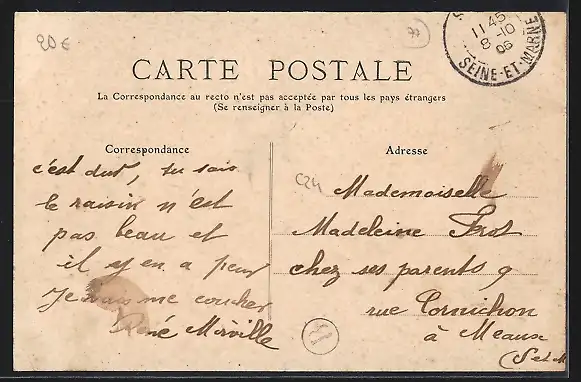 20€
77
11 45
8 -10
06
SEINE-ET-MARNE
CARTE POSTALE
La Correspondance au recto n'est pas acceptée par tous les pays étrangers
(Se renseigner à la Poste)
Correspondance
Adresse
c'est dur, tu sais
le raisin n'est
pas beau et
il y en a peu
Je vais me coucher
René Mirville
C24
Mademoiselle
Madeleine Frot
chez ses parents 9
rue Cornichon
à Meaux
(S et M